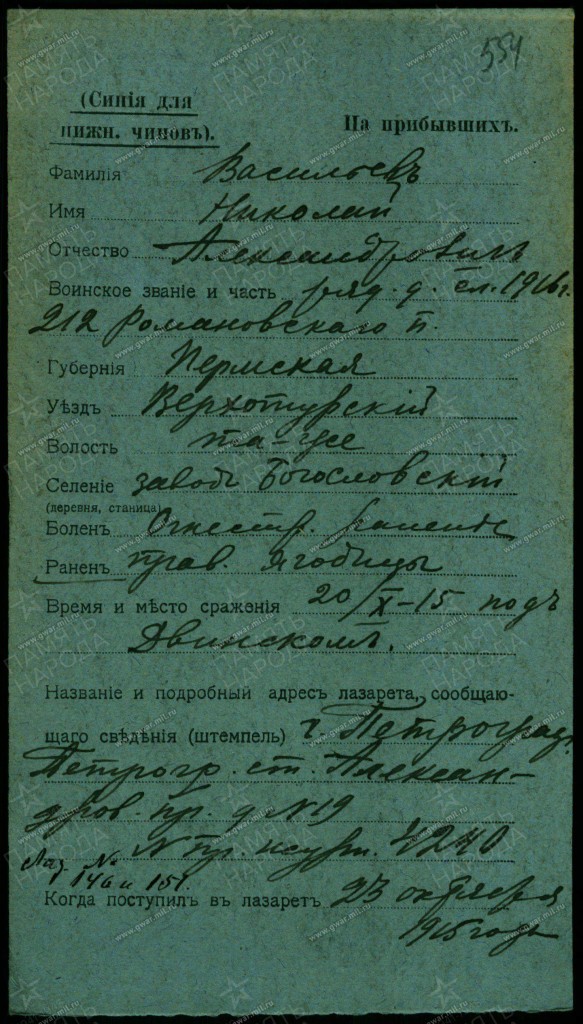 554
(Синія для
нижн. чиновъ).
На прибывшихъ.
Фамилія Васильевъ
Имя Николай
Отчество Александровичъ
Воинское званіе и часть ряд. д. сл. 1916 г.
212 Романовскаго п.
Губернія Пермская
Уѣздъ Верхотурскій
Волость та-же
Селеніе заводъ Богословскій
(деревня, станица)
Боленъ Огнестр. раненіе
Раненъ прав. ягодицы
Время и мѣсто сраженія 20/X-15 подъ
Двинскомъ.
Названіе и подробный адресъ лазарета, сообщаю-
щаго свѣдѣнія (штемпель) г. Петроградъ
Петрогр. ст. Алексан-
дров. пр. д. №19
N пр. 4240
Лаз. №
146 и 151.
Когда поступилъ въ лазаретъ 23 октября
1915 года